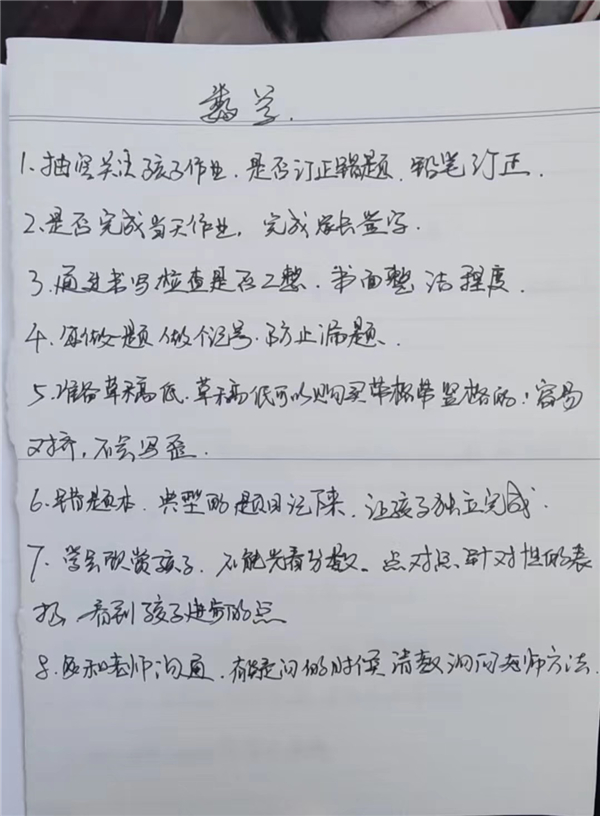 数学.
1.抽空关注孩子作业.是否订正错题.铅笔订正.
2.是否完成当天作业,完成家长签字.
3.通过书写检查是否工整.书面整洁程度.
4.每做一题做个记号.防止漏题、
5.准备草稿低.草稿低可以购买带横带竖格的!容易
对齐,不会写歪.
6.错题本.典型的题目记下来,让孩子独立完成.
7.学会欣赏孩子.不能光看分数、点对点.针对性的表
扬,看到孩子进步的点
8.多和老师沟通.有疑问的时候请教询问老师方法.